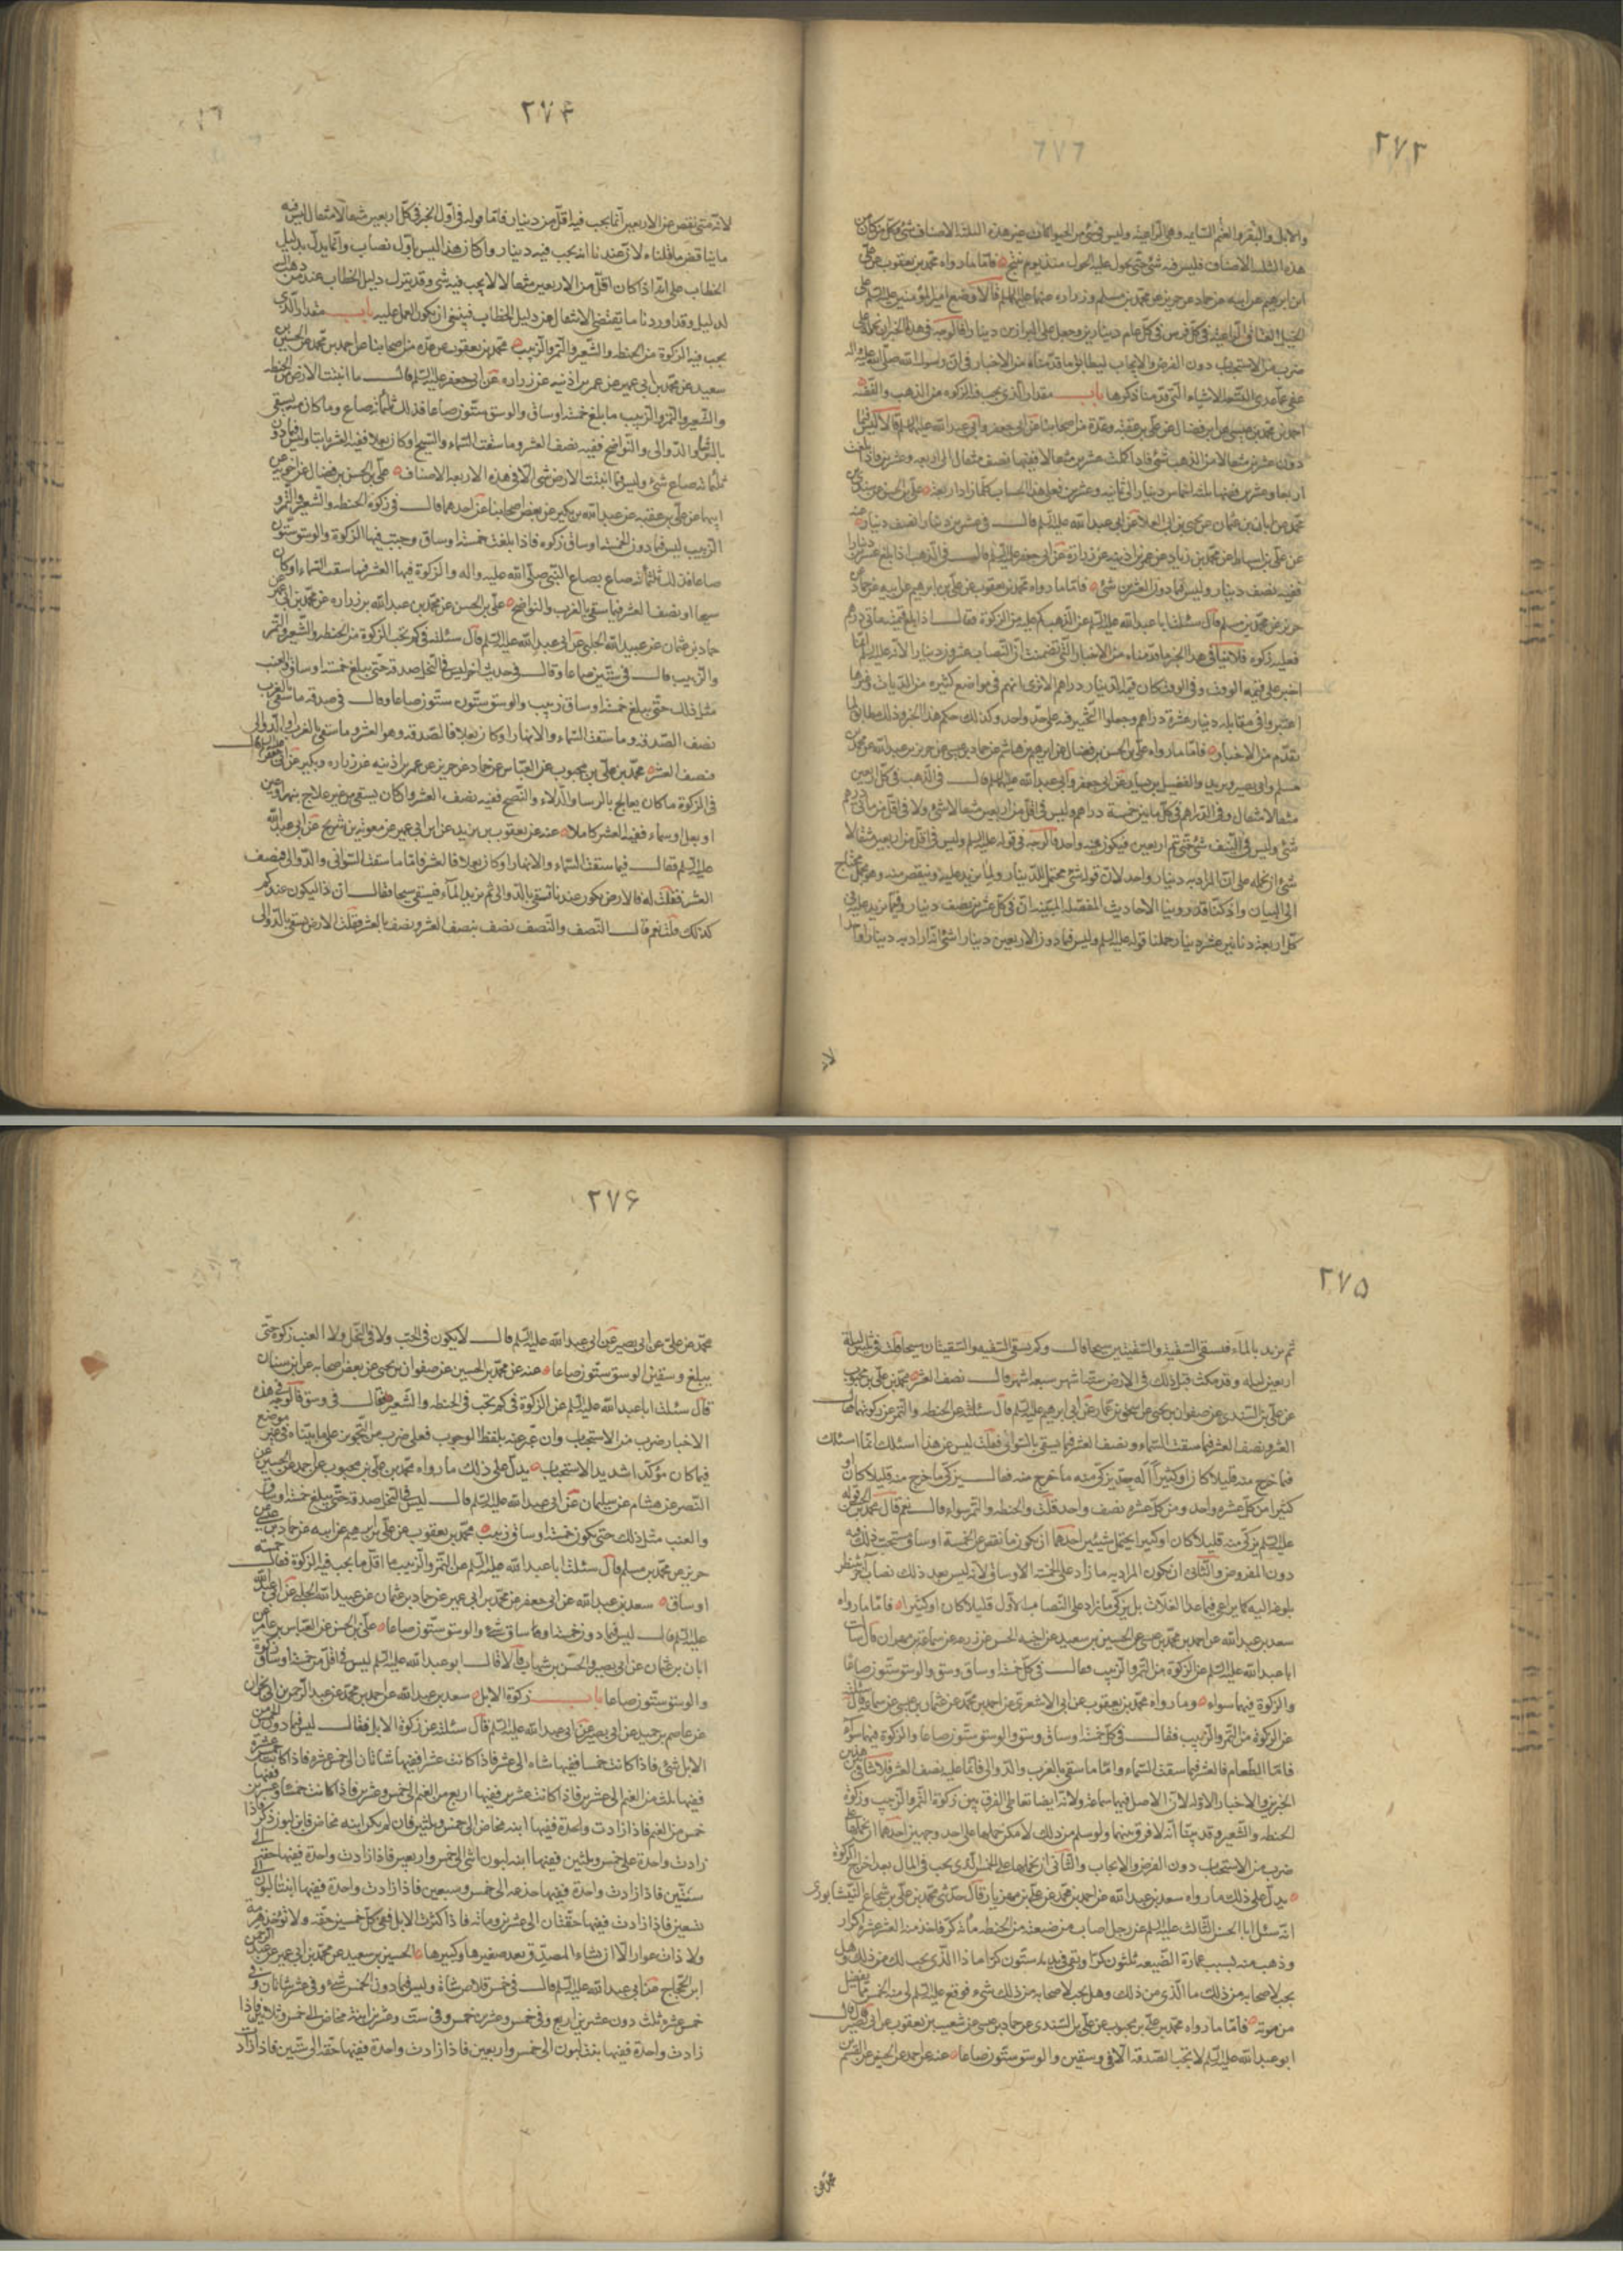 ۲۷۳
والابل والبقر والغنم السايمه وهى الراعية وليس فى شئ من الحيوانات غير هذه الثلثة الاصناف شئ وكل ما كان من
هذه الثلثه الاصناف فليس فيه شئ حتى يحول عليه الحول منذ يوم ينتج فاما ما رواه محمد بن يعقوب عن على
ابن ابرهيم عن ابيه عن حماد عن حريز عن محمد بن مسلم وزراره عنهما عليهما السلم قالا وضع امير المؤمنين عليه السلم على
الخيل العتاق الراعية فى كل فرس فى كل عام دينارين وجعل على البراذين دينارا فالوجه فى هذا الخبر ان نحمله على
ضرب من الاستحباب دون الفرض والايجاب ليطابق ما قدمناه من الاخبار فى ان رسول الله صلى الله عليه واله
عفى عما عدى التسعة الاشياء التى قدمنا ذكرها باب مقدار الذى يجب فيه الزكوة من الذهب والفضه
احمد بن محمد بن عيسى عن ابن فضال عن على بن عقبة وعدة من اصحابنا عن ابى جعفر وابى عبد الله عليهما السلم قالا ليس فيما
دون عشرين مثقالا من الذهب شئ فاذا كملت عشرين مثقالا ففيها نصف مثقال الى اربعه وعشرين فاذا بلغت
اربعا وعشرين ففيها ثلثه اخماس دينار الى ثمانيه وعشرين فعلى هذا الحساب كلما زاد اربعة على بن الحسن عن سندى بن
محمد عن ابان بن عثمان عن يحيى بن ابى العلا عن ابى عبد الله عليه السلم قال فى عشرين دينارا نصف دينار عنه
عن على بن اسباط عن محمد بن زياد عن عمر بن اذينه عن زرارة عن ابى جعفر عليه السلم قال فى الذهب اذا بلغ عشرين دينارا
ففيه نصف دينار وليس فيما دون العشرين شئ فاما ما رواه محمد بن يعقوب عن على بن ابرهيم عن ابيه عن حماد عن
حريز عن محمد بن مسلم قال سئلت ابا عبد الله عليه السلم عن الذهب كم عليه من الزكوة فقال اذا بلغ قيمته مأتى درهم
فعليه زكوه فلا ينافى هذا الخبر ما قدمناه من الاخبار التى تضمنت ان النصاب عشرون دينارا لانه عليه السلم انما
اخبر على قيمة الوقت وفى الوقت كان قيمة الدينار دراهم الا ترى انهم فى مواضع كثيره من الديات وغيرها
اعتبروا فى مقابله دينار عشرة دراهم وجعلوا التخيير فيه على حد واحد وكذلك حكم هذا الخبر وذلك مطابق لما
تقدم من الاخبار فاما ما رواه على بن الحسن بن فضال عن ابرهيم بن هاشم عن حماد بن عيسى عن حريز بن عبد الله عن محمد بن
مسلم وابى بصير وبريد والفضيل بن يسار عن ابى جعفر وابى عبد الله عليهما السلم قالا فى الذهب فى كل اربعين
مثقالا مثقال وفى الدراهم فى كل مايتين خمسة دراهم وليس فى اقل من اربعين مثقالا شئ ولا فى اقل من مأتى درهم
شئ وليس فى النيف شئ حتى تتم اربعين فيكون فيه واحد فالوجه فى قوله عليه السلم وليس فى اقل من اربعين مثقالا
شئ ان نحمله على ان المراد به دينار واحد لان قوله شئ محتمل للدينار ولما يزيد عليه وينقص منه وهو مجمل محتاج
الى البيان واذ كنا قد روينا الاحاديث المفصله المبينه ان فى كل عشرين نصف دينار وفيما يزيد عليه فى
كل اربعة دنانير عشر دينار حملنا قوله عليه السلم وليس فيما دون الاربعين دينارا شئ انه اراد به دينارا واحدا
لا
۲۷۴
لانه متى نقص عن الاربعين انما يجب فيه اقل من دينار فاما قوله فى اول الخبر فى كل اربعين مثقالا مثقال ليس فيه
ما يناقض ما قلناه لان عندنا انه يجب فيه دينار وان كان هذا ليس باول نصاب وانما يدل بدليل
الخطاب على انه اذا كان اقل من الاربعين مثقالا لا يجب فيه شئ وقد يترك دليل الخطاب عند من ذهب
لدليل وقد اوردنا ما يقتضى الانتقال عن دليل الخطاب فينبغى ان يكون العمل عليه باب مقدار الذى
يجب فيه الزكوة من الحنطه والشعير والتمر والزبيب محمد بن يعقوب عن عدة من اصحابنا عن احمد بن محمد عن الحسين بن
سعيد عن محمد بن ابى عمير عن عمر بن اذنيه عن زراره عن ابى جعفر عليه السلم قال ما انبتت الارض من الحنطه
والشعير والتمر والزبيب ما بلغ خمسة اوساق والوسق ستون صاعا فذلك ثلثمائه صاع وما كان منه يسقى
بالرشا والدوالى والنواضح ففيه نصف العشر وما سقت السماء والسيح او كان بعلا ففيه العشر تاما وليس فيما دون
ثلثمائه صاع شئ وليس فيما انبتت الارض شئ الا فى هذه الاربعه الاصناف على بن الحسن بن فضال عن اخويه عن
ابيهما عن على بن عقبه عن عبد الله بن بكير عن بعض اصحابنا عن احدهما قال فى زكوة الحنطه والشعير والتمر و
الزبيب ليس فيما دون الخمسة اوساق زكوه فاذا بلغت خمسة اوساق وجبت فيها الزكوة والوسق ستون
صاعا فذلك ثلثمائه صاع بصاع النبى صلى الله عليه واله والزكوة فيها العشر فيما سقت السماء او كان
سيحا او نصف العشر فيما سقى بالغرب والنواضح على بن الحسن عن محمد بن عبد الله بن زراره عن محمد بن ابى عمير عن
حماد بن عثمان عن عبيد الله الحلبى عن ابى عبد الله عليه السلم قال سئلته فى كم تجب الزكوة من الحنطه والشعير والتمر
والزبيب قال فى ستين صاعا وقال فى حديث اخر ليس فى النخل صدقه حتى يبلغ خمسة اوساق والعنب
مثل ذلك حتى يبلغ خمسة اوساق زبيب والوسق ستون صاعا وقال فى صدقه ما سقى بالغرب
نصف الصدقه وما سقت السماء والانهار او كان بعلا فالصدقه وهو العشر وما سقى بالغرب او الدوالى
فنصف العشر محمد بن على بن محبوب عن العباس عن حماد عن حريز عن عمر بن اذينه عن زراره وبكير عن ابى جعفر عليه السلم قال
فى الزكوة ما كان يعالج بالرشا والدلاء والنضح ففيه نصف العشر وان كان يسقى من غير علاج بنهر او عين
او بعل او سماء ففيه العشر كاملا عنه عن يعقوب بن يزيد عن ابن ابى عمير عن معويه بن شريح عن ابى عبد الله
عليه السلم فقال فيما سقت السماء والانهار او كان بعلا فالعشر فاما ما سقت السوانى والدوالى فنصف
العشر فقلت له فالارض تكون عندنا تسقى بالدوالى ثم يزيد المآء فيسقى سيحا فقال ان ذا ليكون عندكم
كذلك قلت نعم قال النصف والنصف نصف بنصف العشر ونصف بالعشر فقلت الارض تسقى بالدوالى
۲۷۵
ثم يزيد بالمآء فتسقى السقية والسقيتين سيحا قال وكم تسقى السقيه والسقيتان سيحا قلت فى ثلثين ليلة
اربعين ليله وقد مكث قبل ذلك فى الارض ستة اشهر سبعه اشهر قال نصف العشر محمد بن على بن محبوب
عن على بن السندى عن صفوان بن يحيى عن اسحق بن عمار عن ابى ابرهيم عليه السلم قال سئلته عن الحنطه والتمر عن زكوتهما فقال
العشر ونصف العشر فيما سقت السماء ونصف العشر فيما يسقى بالسوانى فقلت ليس عن هذا اسئلك انما اسئلك
عما خرج منه قليلا كان او كثيرا أله حد يزكى منه ما خرج منه فقال يزكى ما خرج منه قليلا كان او
كثيرا من كل عشره واحد ومن كل عشره نصف واحد قلت والحنطه والتمر سواء قال نعم قال محمد بن الحسن قوله
عليه السلم يزكى منه قليلا كان او كثيرا يحتمل شيئين احدهما ان يكون ما نقص عن الخمسة اوساق مستحب ذلك فيه
دون المفروض والثانى ان يكون المراد به ما زاد على الخمسة الاوساق لانه ليس بعد ذلك نصاب اخر ينتظر
بلوغه اليه كما يراعى فيما عدا الغلات بل يزكى ما زاد على النصاب الاول قليلا كان او كثيرا فاما ما رواه
سعد بن عبد الله عن احمد بن محمد بن عيسى عن الحسين بن سعيد عن اخيه الحسن عن زرعه عن سماعة بن مهران قال سألت
ابا عبد الله عليه السلم عن الزكوة من التمر والزبيب فقال فى كل خمسة اوساق وسق والوسق ستون صاعا
والزكوة فيهما سواء وما رواه محمد بن يعقوب عن ابى الاشعرى عن احمد بن محمد عن عثمان بن عيسى عن سماعه قال سئلته
عن الزكوة من التمر والزبيب فقال فى كل خمسة اوساق وسق والوسق ستون صاعا والزكوة فيهما سواء
فاما الطعام فالعشر فيما سقت السماء واما ما سقى بالغرب والدوالى فانما عليه نصف العشر فلا تنافى بين هذين
الخبرين والاخبار الاوله لان الاصل فيهما سماعة ولانه ايضا تعاطى الفرق بين زكوة التمر والزبيب وزكوة
الحنطه والشعير وقد بينا انه لا فرق بينهما ولو سلم من ذلك لامكن حملهما على احد وجهين احدهما ان نحملهما على
ضرب من الاستحباب دون الفرض والايجاب والثانى ان نحملهما على الخمس الذى يجب فى المال بعد اخراج الزكوة
يدل على ذلك ما رواه سعد بن عبد الله عن احمد بن محمد عن على بن مهزيار قال حدثنى محمد بن على بن شجاع النيشابورى
انه سئل ابا الحسن الثالث عليه السلم عن رجل اصاب من ضيعته من الحنطه مأئه كر فاخذ منه العشر عشرة اكرار
وذهب منه بسبب عمارة الضيعه ثلثون كرا وبقى فى يده ستون كرا ما ذا الذى يجب لك من ذلك وهل
يجب لاصحابه من ذلك ما الذى من ذلك وهل يجب لاصحابه من ذلك شئ فوقع عليه السلم لى منه الخمس مما يفضل
من مؤنته فاما ما رواه محمد بن على بن محبوب عن على بن السندى عن حماد بن عيسى عن شعيب بن يعقوب عن ابى بصير قال قال
ابو عبد الله عليه السلم لا تجب الصدقه الا فى وسقين والوسق ستون صاعا عنه عن احمد عن الحسين عن القسم
محمد عن
۲۷۶
محمد عن على عن ابى بصير عن ابى عبد الله عليه السلم قال لا يكون فى الحب ولا فى النخل ولا العنب زكوة حتى
يبلغ وسقين الوسق ستون صاعا عنه عن محمد بن الحسين عن صفوان بن يحيى عن بعض اصحابه عن ابن سنان
قال سئلت ابا عبد الله عليه السلم عن الزكوة فى كم تجب فى الحنطه والشعير فقال فى وسق فالوجه فى هذه
الاخبار ضرب من الاستحباب وان عبر عنه بلفظ الوجوب فعلى ضرب من التجوز على ما بيناه فى غير موضع
فيما كان مؤكدا شديد الاستحباب يدل على ذلك ما رواه محمد بن على بن محبوب عن احمد عن الحسين عن
النضر عن هشام عن سليمان عن ابى عبد الله عليه السلم قال ليس فى النخل صدقه حتى يبلغ خمسة اوساق
والعنب مثل ذلك حتى يكون خمسة اوساق زبيب محمد بن يعقوب عن على بن ابرهيم عن ابيه عن حماد بن عيسى عن
حريز عن محمد بن مسلم قال سئلت ابا عبد الله عليه السلم عن التمر والزبيب ما اقل ما يجب فيه الزكوة فقال خمسه
اوساق سعد بن عبد الله عن ابى جعفر عن محمد بن ابى عمير عن حماد بن عثمان عن عبيد الله الحلبى عن ابى عبد الله
عليه السلم قال ليس فيما دون خمسة اوساق شئ والوسق ستون صاعا على بن الحسن عن العباس بن عامر عن
ابان بن عثمان عن ابى بصير والحسن بن شهاب قالا قال ابو عبد الله عليه السلم ليس فى اقل من خمسة اوساق زكوة
والوسق ستون صاعا باب زكوة الابل سعد بن عبد الله عن احمد بن محمد عن عبد الرحمن بن ابى نجران
عن عاصم بن حميد عن ابى بصير عن ابى عبد الله عليه السلم قال سئلته عن زكوة الابل فقال ليس فيما دون الخمس من
الابل شئ فاذا كانت خمسا ففيها شاه الى عشر فاذا كانت عشرا ففيها شاتان الى خمس عشره فاذا كانت خمس عشره
ففيها ثلث من الغنم الى عشرين فاذا كانت عشرين ففيها اربع من الغنم الى خمس وعشرين فاذا كانت خمسا وعشرين ففيها
خمس من الغنم فاذا زادت واحدة ففيها ابنه مخاض الى خمس وثلثين فان لم يكن ابنه مخاض فابن لبون ذكر فاذا
زادت واحدة على خمس وثلثين ففيها ابنه لبون انثى الى خمس واربعين فاذا زادت واحدة ففيها حقه الى
ستين فاذا زادت واحدة ففيها جذعه الى خمس وسبعين فاذا زادت واحدة ففيها ابنتا لبون الى
تسعين فاذا زادت ففيها حقتان الى عشرين ومائه فاذا كثرت الابل ففى كل خمسين حقه ولا تؤخذ هرمة
ولا ذات عوار الا ان يشاء المصدق يعد صغيرها وكبيرها الحسين بن سعيد عن محمد بن ابى عمير عن عبد الرحمن
ابن الحجاج عن ابى عبد الله عليه السلم قال فى خمس قلاص شاة وليس فيما دون الخمس شئ وفى عشر شاتان وفى
خمس عشره ثلث دون عشرين اربع وفى خمس وعشرين خمس وفى ست وعشرين ابنة مخاض الى خمس وثلاثين فاذا
زادت واحدة ففيها بنت لبون الى خمس واربعين فاذا زادت واحدة ففيها حقه الى ستين فاذا زادت